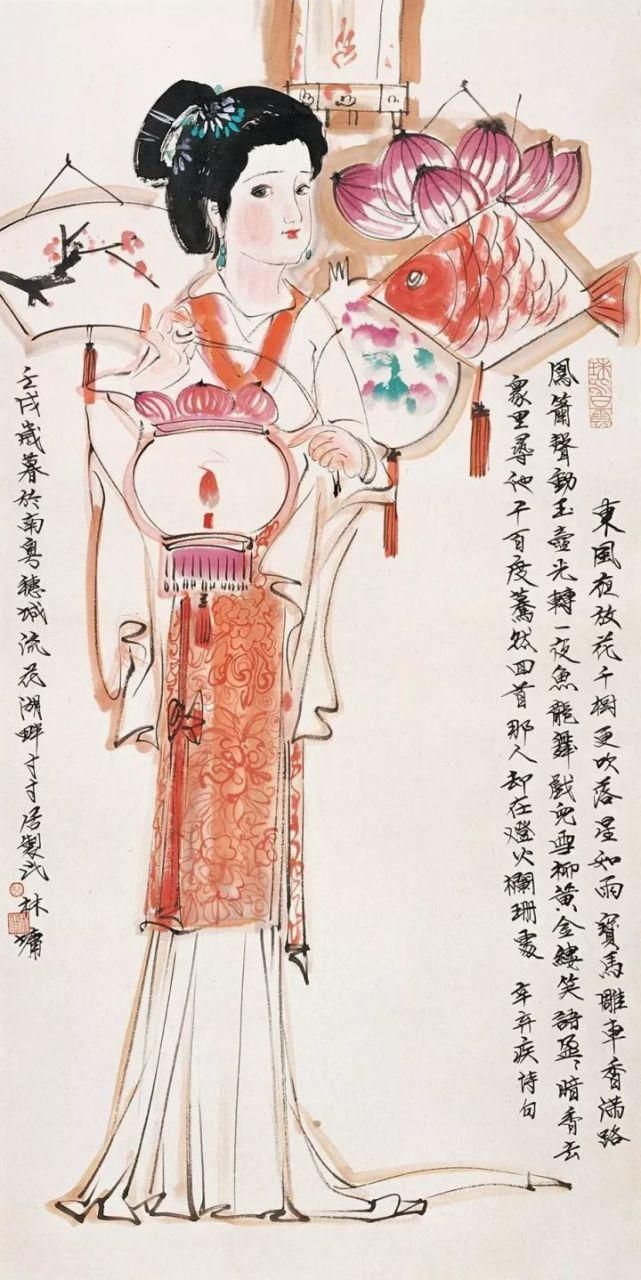 東風夜放花千樹更吹落星如雨寶馬雕車香滿路
鳳簫聲動玉壺光轉一夜魚龍舞蛾兒雪柳黃金縷笑語盈〻暗香去
眾里尋他千百度驀然回首那人却在燈火欄珊處 辛弃疾詩句
壬戌歲暮於南粵穗城流花湖畔寸寸居製 林墉